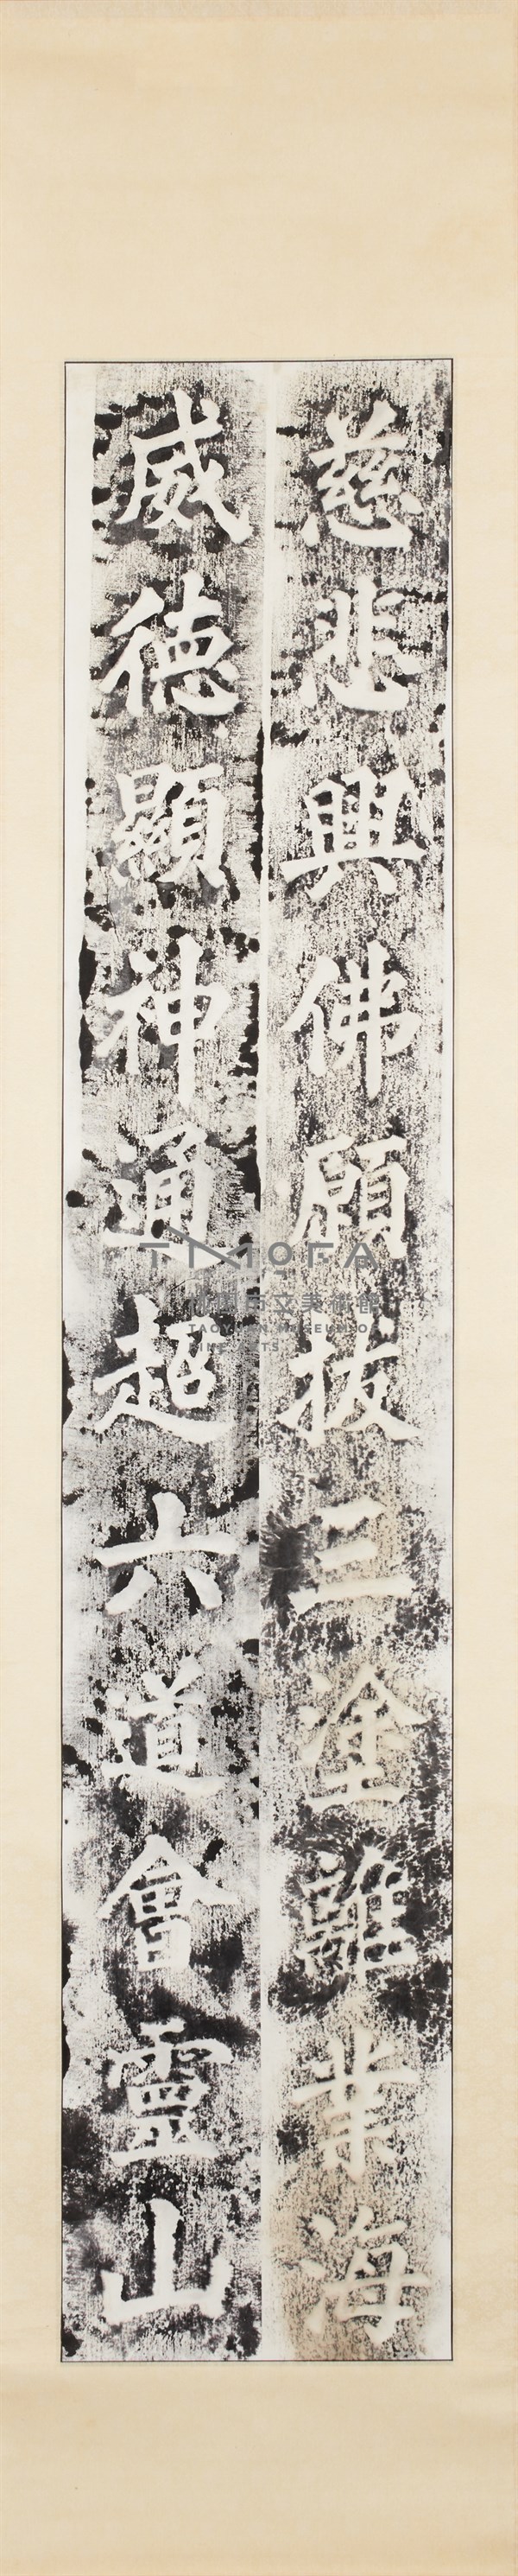 慈悲興佛願拔三塗離業海
威德顯神通超六道會靈山
TMOFA
桃園市立美術館
TAOYUAN MUSEUM OF
FINE ARTS